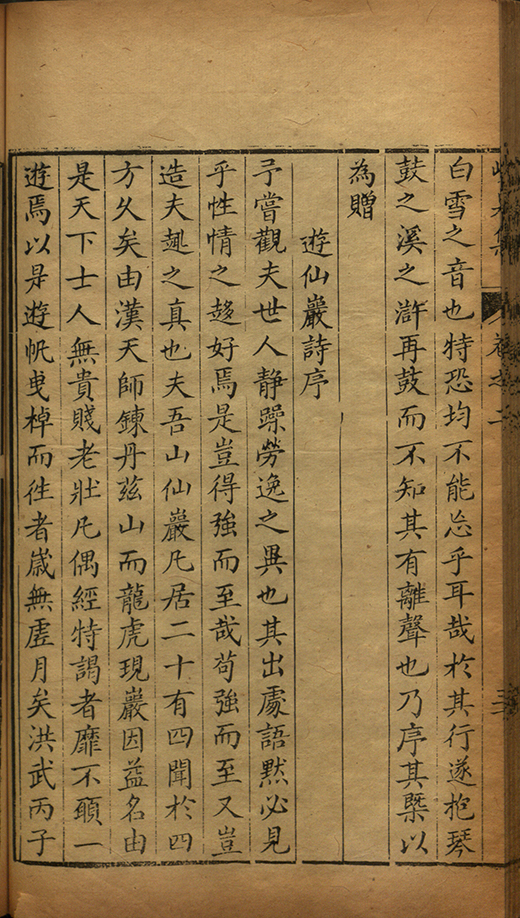 卷之二
白雪之音也特恐均不能忘乎耳哉於其行遂抱琴
鼓之溪之滸再鼓而不知其有離聲也乃序其槩以
為贈
遊仙巖詩序
予嘗觀夫世人静躁勞逸之異也其出處語默必見
乎性情之趍好焉是豈得強而至哉苟強而至又豈
造夫趣之真也夫吾山仙巖凡居二十有四聞於四
方久矣由漢天師鍊丹兹山而龍虎現巖因益名由
是天下士人無貴賤老壯凡偶經特謁者靡不願一
遊焉以是遊帆曳棹而徃者歲無虛月矣洪武丙子